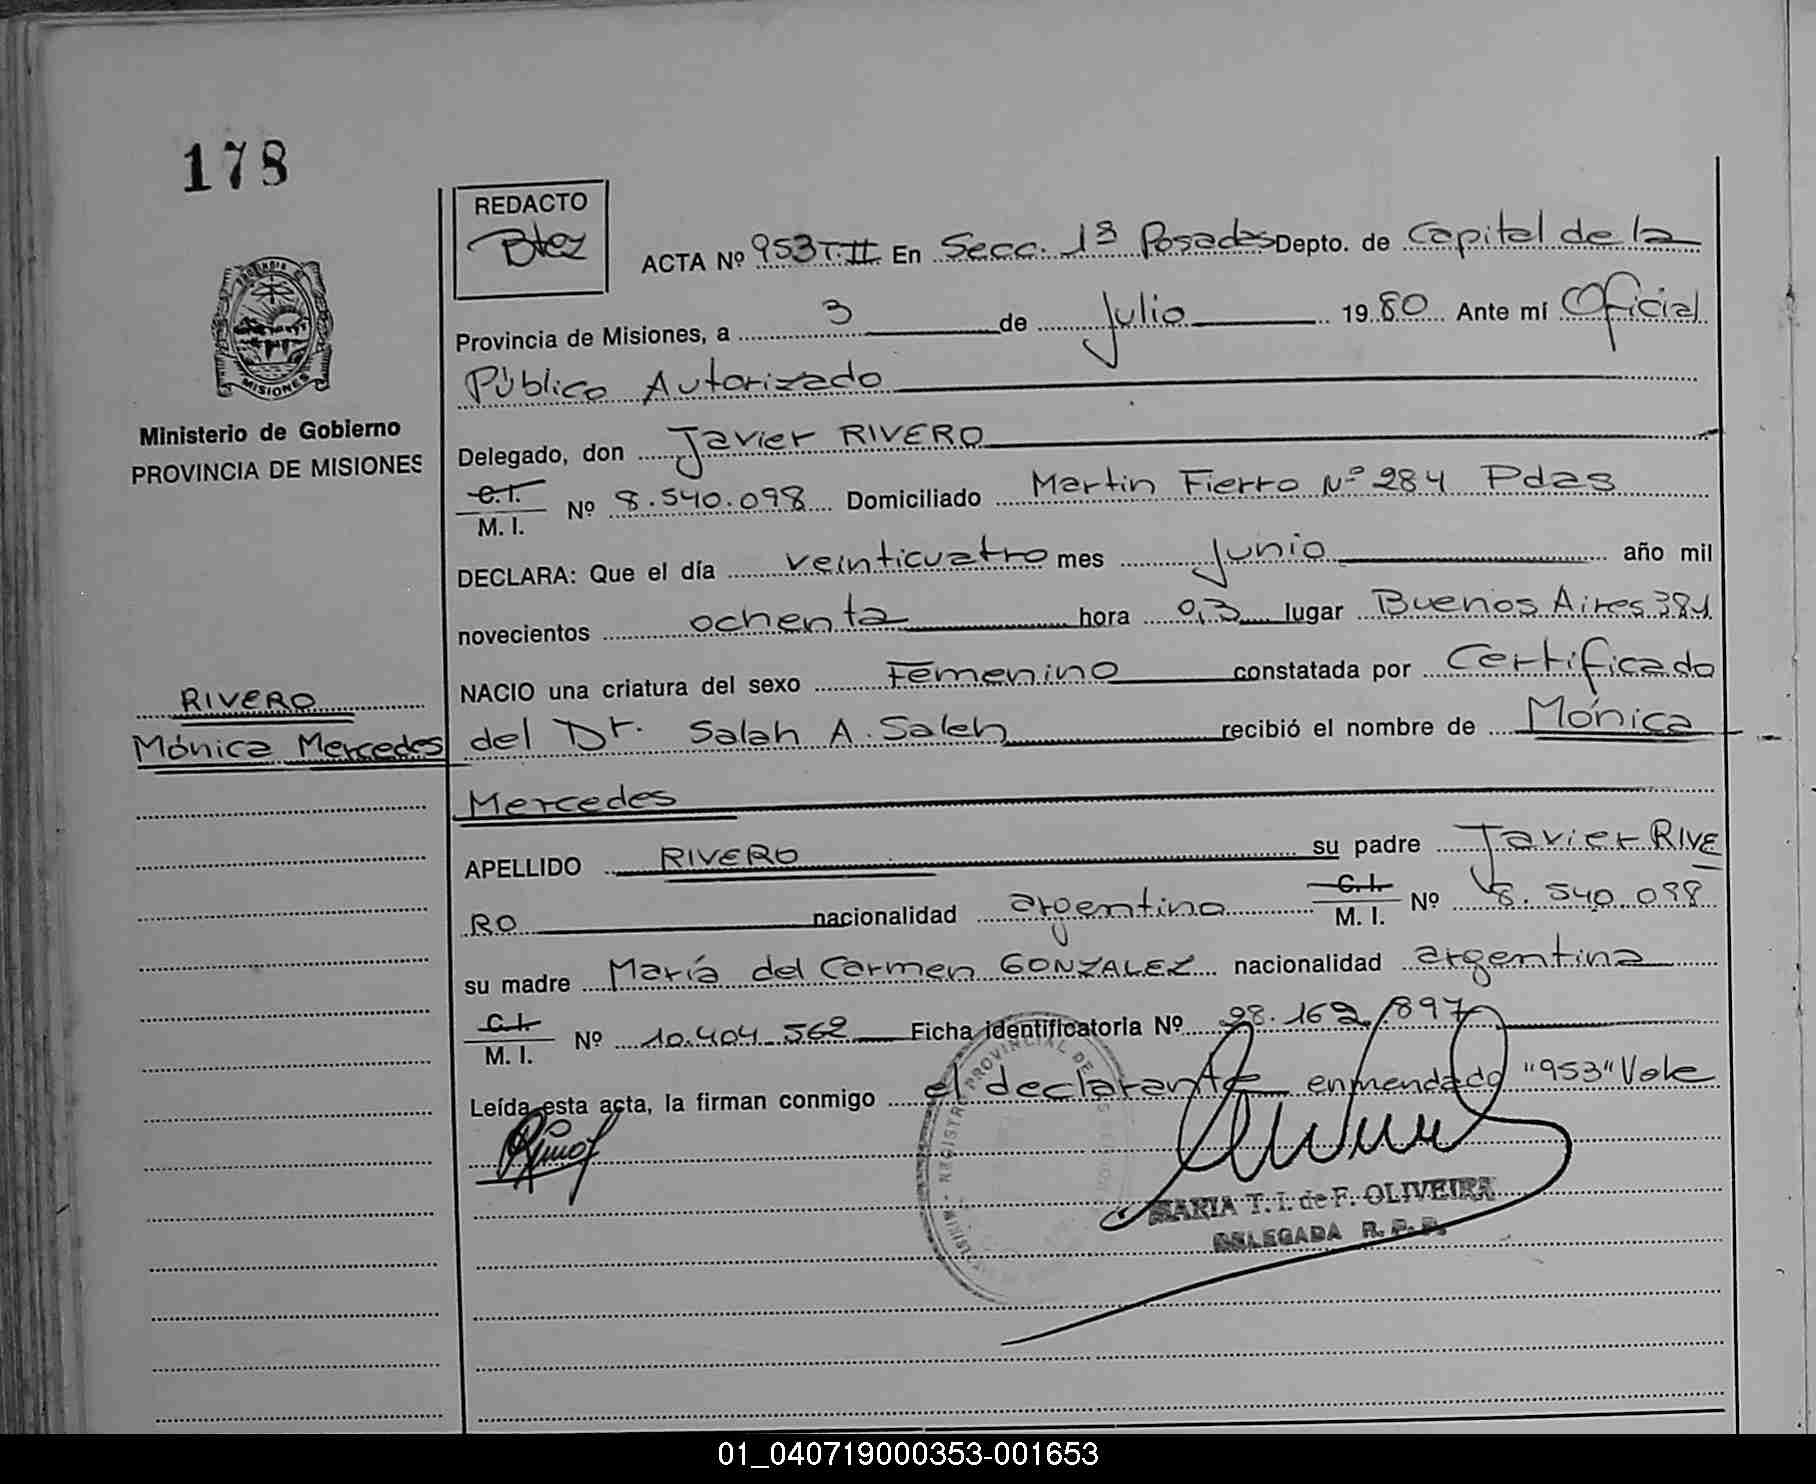 178
REDACTO
Btez
ACTA Nº 953 T.II En Secc. 1ª Posadas Depto. de Capital de la
Provincia de Misiones, a 3 de Julio 19 80 Ante mí Oficial
Público Autorizado
MISIONES
Ministerio de Gobierno
PROVINCIA DE MISIONES
Delegado, don Javier RIVERO
C.I.
M. I. Nº 8.540.098 Domiciliado Martin Fierro Nº 284 Pdas
DECLARA: Que el día veinticuatro mes Junio año mil
novecientos ochenta hora 0,3 lugar Buenos Aires 381
NACIO una criatura del sexo Femenino constatada por Certificado
RIVERO
Mónica Mercedes
del Dr. Salah A. Saleh recibió el nombre de Mónica
Mercedes
APELLIDO RIVERO su padre Javier RIVE
RO nacionalidad argentino C.I. M. I. Nº 8.540.098
su madre María del Carmen GONZALEZ nacionalidad argentina
C.I.
M. I. Nº 10.404.562 Ficha identificatoria Nº 28.162.897
Leída esta acta, la firman conmigo el declarante enmendado "953" Vale
REGISTRO PROVINCIAL DE
MARIA T. I. de F. OLIVEIRA
DELEGADA R. P. P.
01_040719000353-001653